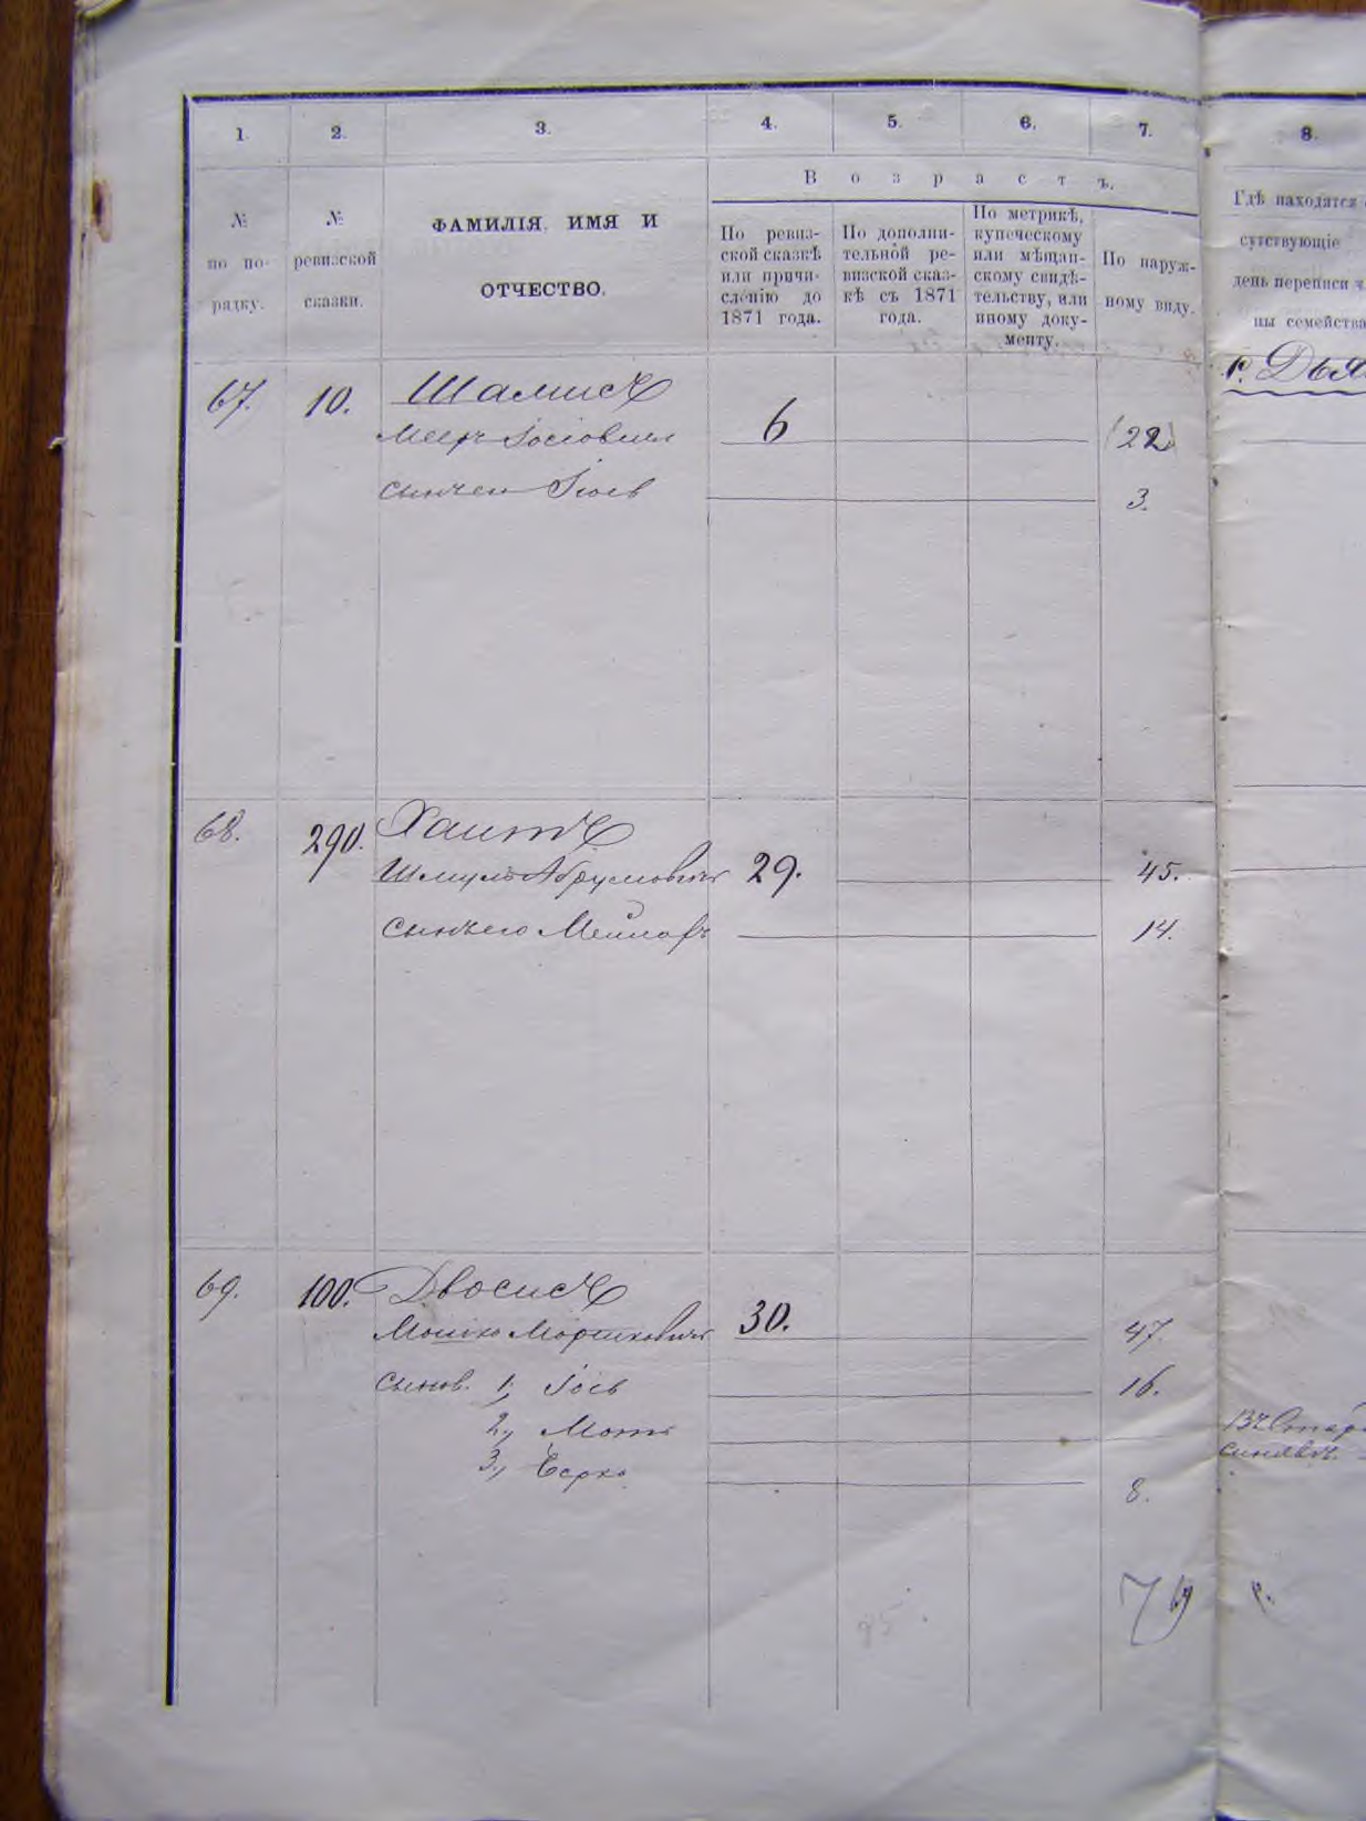 1. 2. 3. 4. 5. 6. 7. 8.
Возрастъ.
№ по порядку.
№ ревизской сказки.
ФАМИЛІЯ, ИМЯ И
ОТЧЕСТВО.
По ревиз-
ской сказкѣ
или причи-
сленію до
1871 года.
По дополни-
тельной ре-
визской сказ-
кѣ съ 1871
года.
По метрикѣ,
купеческому
или мѣщан-
скому свидѣ-
тельству, или
иному доку-
менту.
По наруж-
ному виду.
Гдѣ находятся
сутствующіе
день переписи ч
ны семейства
67. 10. Шамисъ
Меер Іосіовичъ 6 22
сынъ его Іось 3.
68. 290. Хаитъ
Шмуль Абрумовичъ 29. 45.
сынъ его Мейлахъ 14.
69. 100. Двосисъ
Мошко Моршковичъ 30. 47.
сынов. 1, Іось 16.
2, Мотя
3, Берко 8.